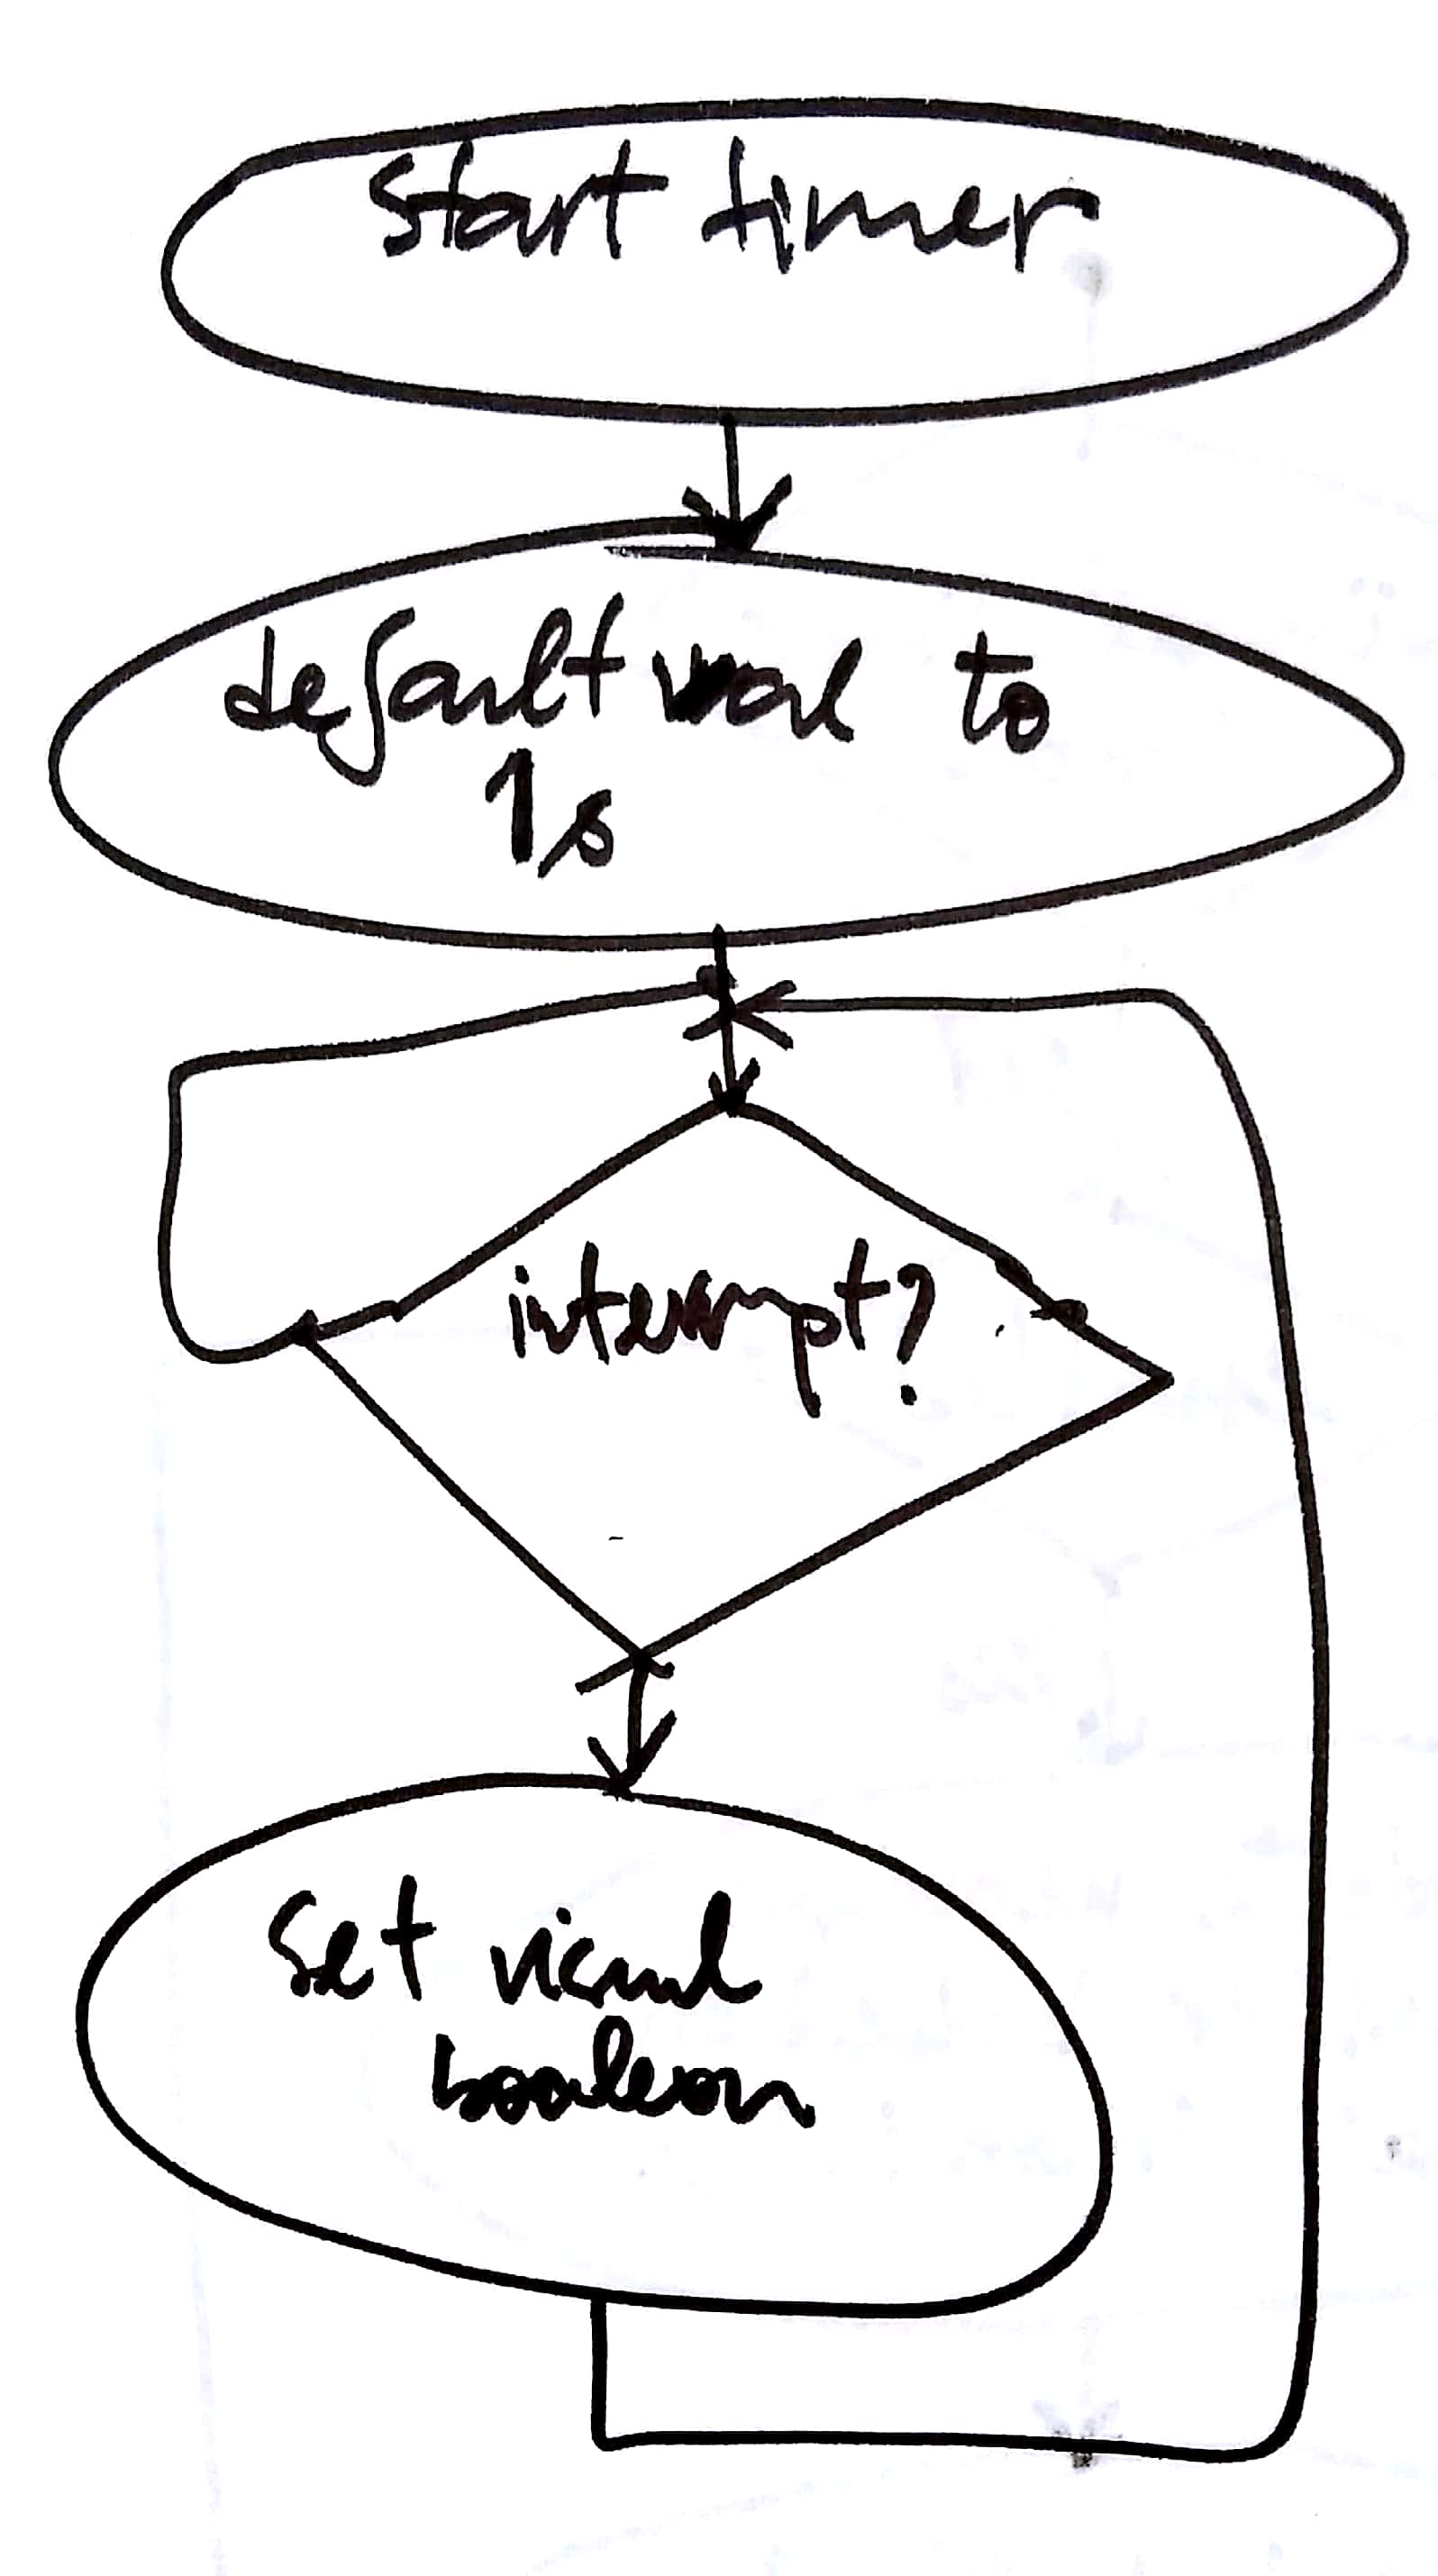 Start timer
default val to
1s
interrupt?
Set visual
boolean